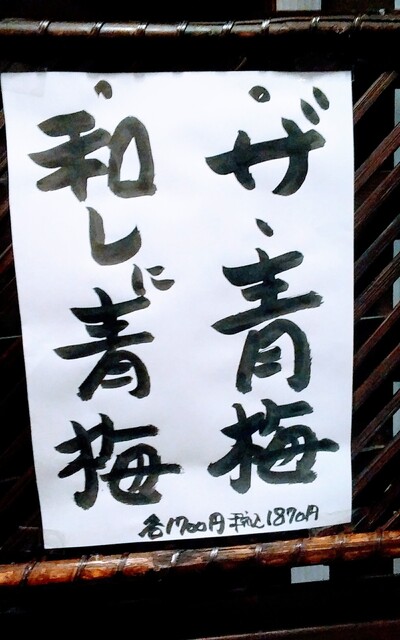 ・ザ・青梅
・和じに青梅
各1700円税込1870円